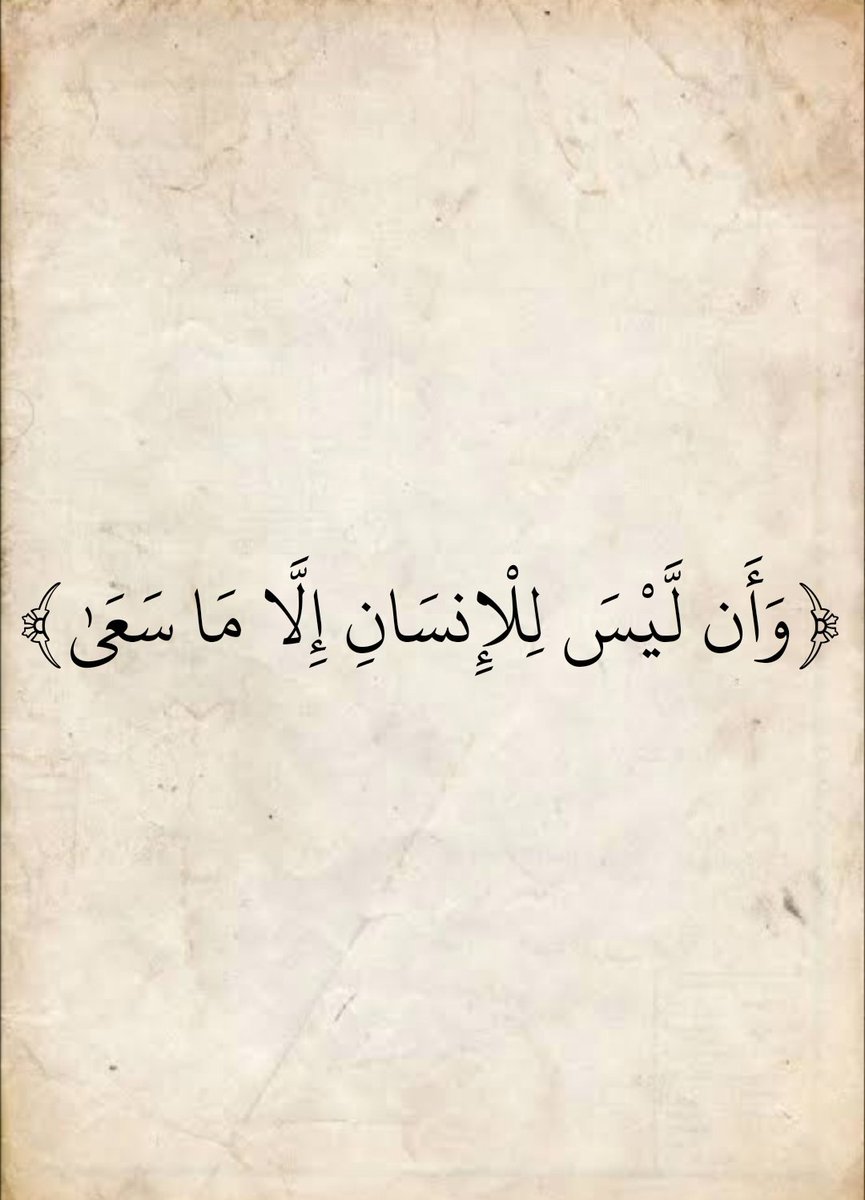 ﴿وَأَن لَّيْسَ لِلْإِنسَانِ إِلَّا مَا سَعَىٰ﴾